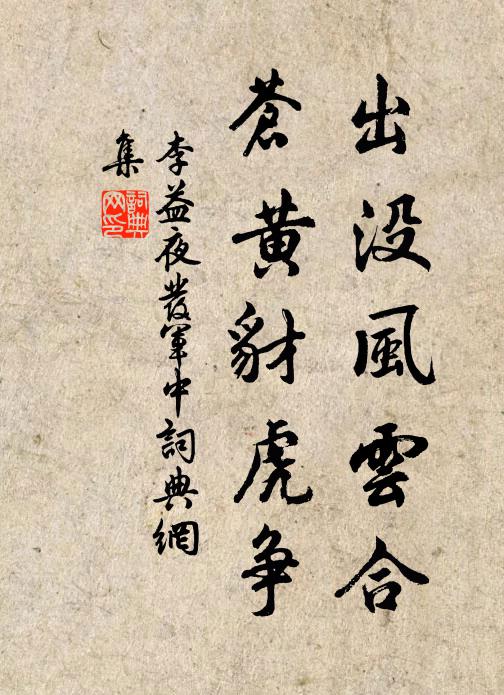 出没風雲合
蒼黄豺虎争
李益夜發軍中詞典網
集
詞典
网印